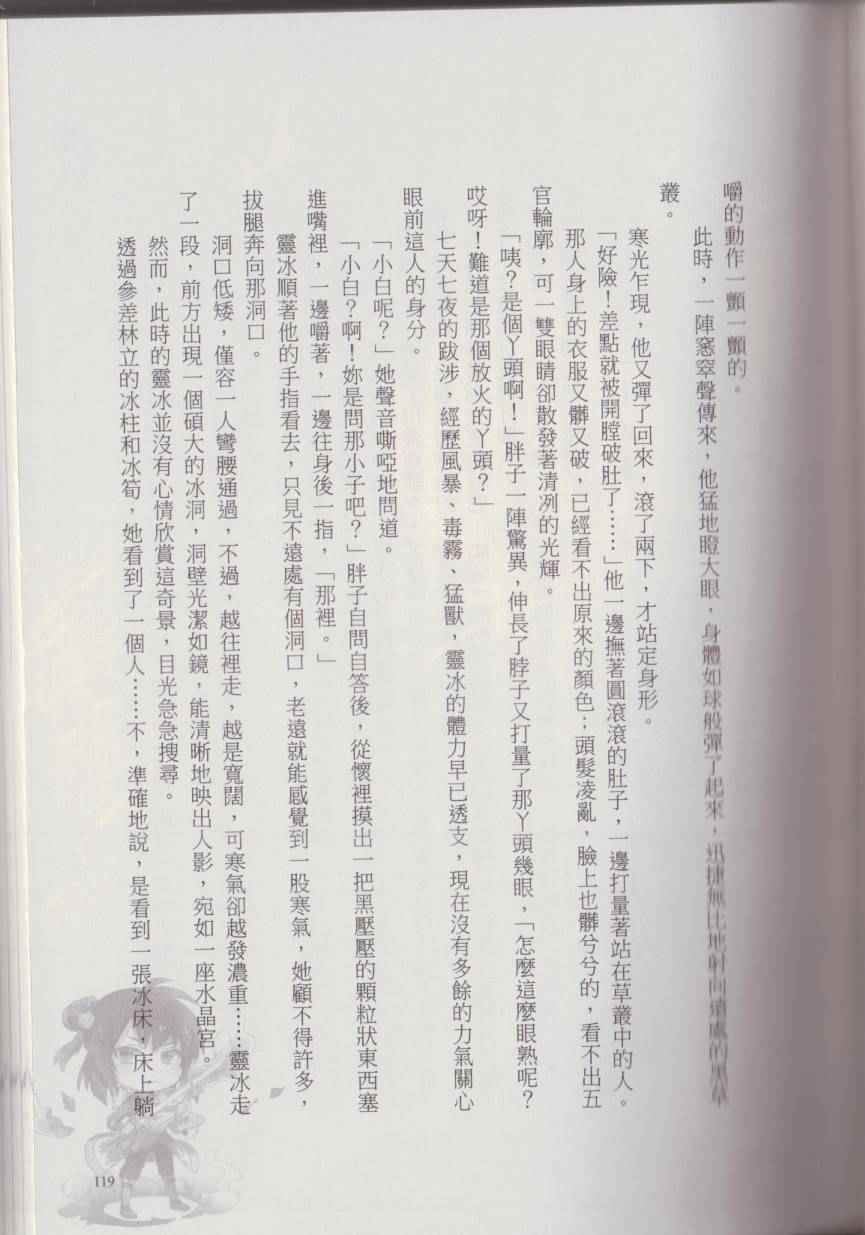 嚼的動作一顫一顫的。
此時，一陣窸窣聲傳來，他猛地瞪大眼，身體如球般彈了起來，迅捷無比地射向遠處的黑草
叢。
寒光乍現，他又彈了回來，滾了兩下，才站定身形。
「好險！差點就被開膛破肚了……」他一邊撫著圓滾滾的肚子，一邊打量著站在草叢中的人。
那人身上的衣服又髒又破，已經看不出原來的顏色；頭髮凌亂，臉上也髒兮兮的，看不出五
官輪廓，可一雙眼睛卻散發著清冽的光輝。
「咦？是個丫頭啊！」胖子一陣驚異，伸長了脖子又打量了那丫頭幾眼，「怎麼這麼眼熟呢？
哎呀！難道是那個放火的丫頭？」
七天七夜的跋涉，經歷風暴、毒霧、猛獸，靈冰的體力早已透支，現在沒有多餘的力氣關心
眼前這人的身分。
「小白呢？」她聲音嘶啞地問道。
「小白？啊！妳是問那小子吧？」胖子自問自答後，從懷裡摸出一把黑壓壓的顆粒狀東西塞
進嘴裡，一邊嚼著，一邊往身後一指，「那裡。」
靈冰順著他的手指看去，只見不遠處有個洞口，老遠就能感覺到一股寒氣，她顧不得許多，
拔腿奔向那洞口。
洞口低矮，僅容一人彎腰通過，不過，越往裡走，越是寬闊，可寒氣卻越發濃重……靈冰走
了一段，前方出現一個碩大的冰洞，洞壁光潔如鏡，能清晰地映出人影，宛如一座水晶宮。
然而，此時的靈冰並沒有心情欣賞這奇景，目光急急搜尋。
透過參差林立的冰柱和冰筍，她看到了一個人……不，準確地說，是看到一張冰床，床上躺
119